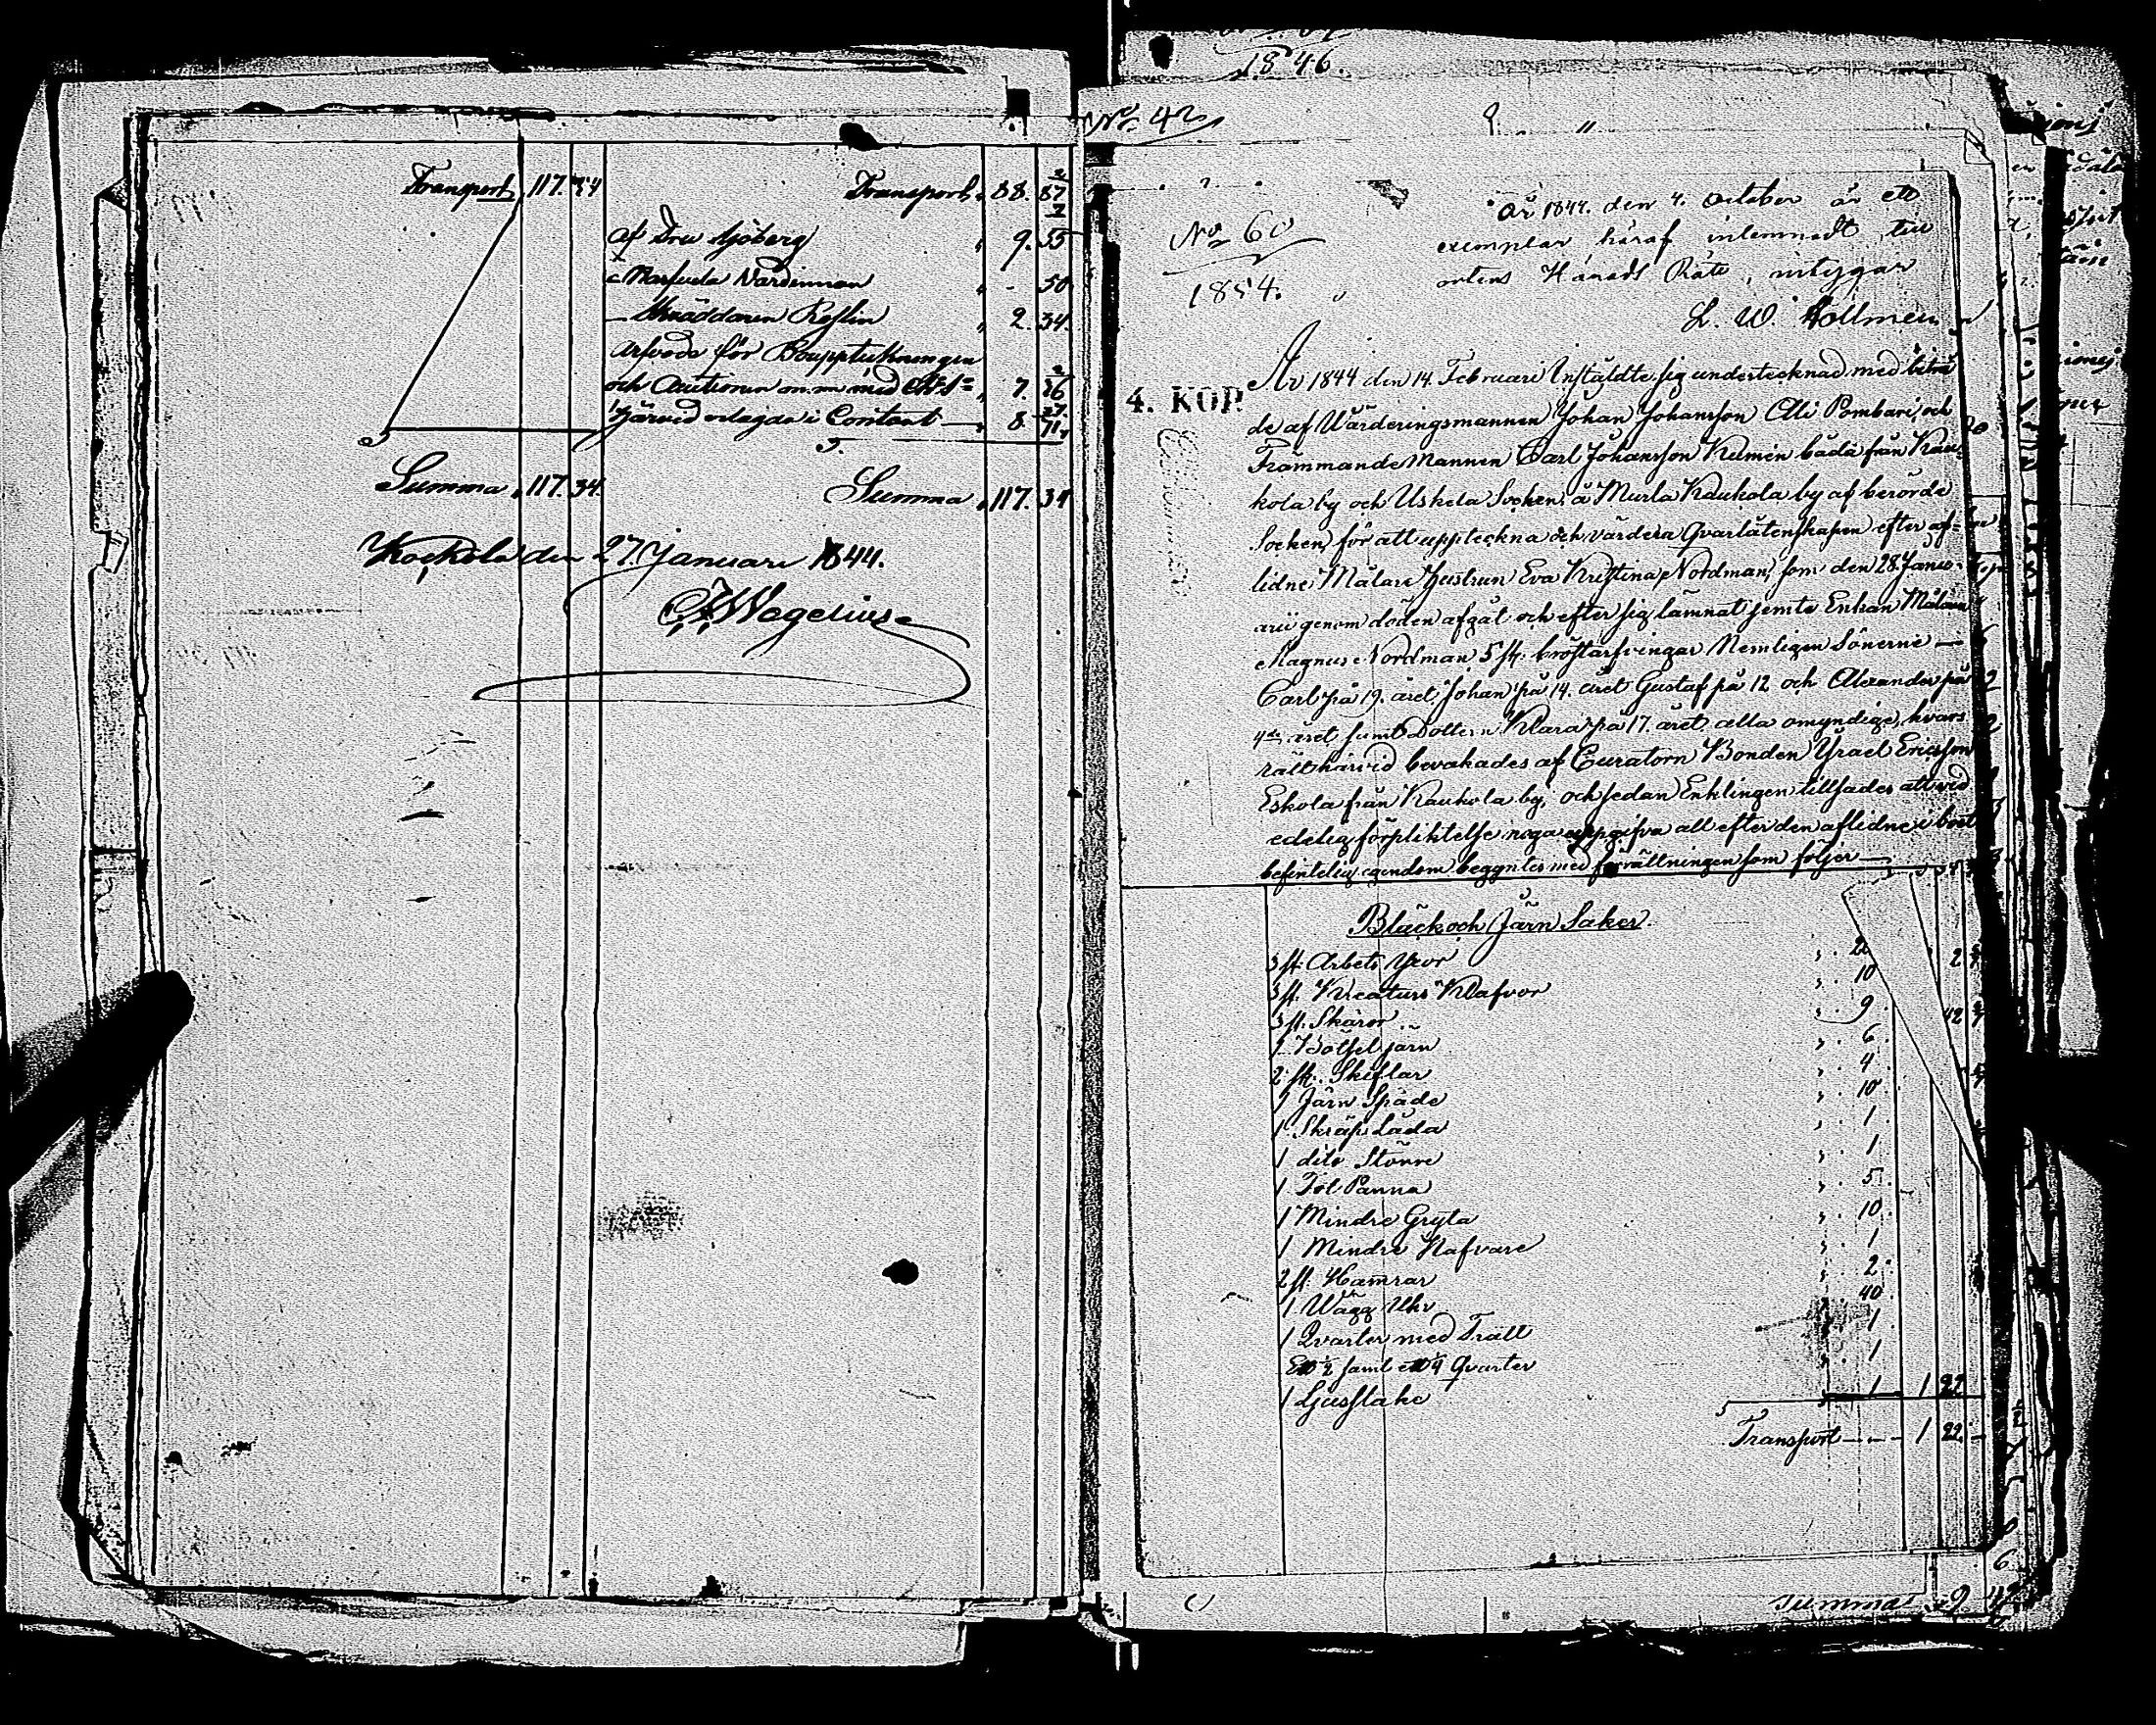 Transport 117. 34
Transport 88. 87
Af Dreu Sjöberg 9. 55
" Nordinman - 50
Skräddaren Reslin 2. 34.
Arfvode för Bouppteckningen
och Auctionen m.m. med 7. 36
härvid erlagde i Contant 8. 71
Summa 117. 34.
Summa 117. 34
Kockola den 27 Januari 1844.
Wegelius
1846.
No 42
No 60
1854.
År 1844. den 4. October är ett
exemplar häraf inlemnadt till
ortens Härads Rätt, intygar
L. W. Hollmén
4. KOP.
År 1844 den 14. Februari Instäldte sig undertecknad med biträ
de af Wärderingsmannen Johan Johansson Alli Pombari, och
Främmande Mannen Carl Johansson Kelmén båda från Kau-
kola by och Uskela Socken, å Murla Kaukola by af berörde
Socken, för att uppteckna och värdera Qvarlåtenskapen efter af-
lidne Målare Hustrun Eva Kristina Nordman, som den 28 Janu-
arii genom döden afgåt och efter sig lämnat jemte Enkan Målaren
Magnus Nordman 5 st. bröstarfvingar Nemligen Sönerne —
Carl på 19. året Johan på 14. året Gustaf på 12 och Alexander på
4de året samt Dottern Klara på 17. året alla omyndige, hvars
rätt härvid bevakades af Curatorn Bonden Yrael Ericsson
Eskola från Kaukola by, och sedan Enklingen tillsades att vid
edelig förpliktelse noga uppgifva all efter den aflidne i boet
befintelig egendom begyntes med förrättningen som följer —
Bläck och Järn Saker.
3 st. Arbets Yxor 20
3 st. Kreaturs Klafvor 10
3 st. Skäror 9
1 Bölsel järn 6
2 st. Skiflar 4
1 Järn Spade 10
1 Skräp Låda 1
1 dito Större 1
1 Fot Panna 5
1 Mindre Gryta 10
1 Mindre Nafvare 1
2 st. Hamrar 2
1 Wägg Uhr 40
1 Qvarter med Tratt 1
Ett ½ samt ett ¼ Qvarter 1
1 Ljusstake 1 1 22.
Transport --- 1 22. -
Summa 9